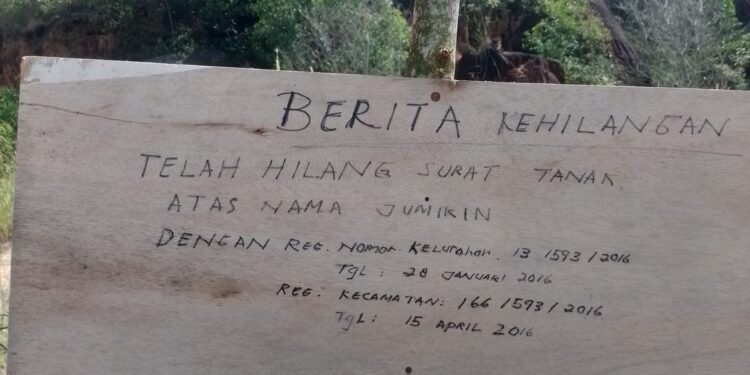 BERITA KEHILANGAN
TELAH HILANG SURAT TANAH
ATAS NAMA JUMIKIN
DENGAN REG. NOMOR KELURAHAN. 13 1593/2016
TGL: 28 JANUARI 2016
REG. KECAMATAN: 166/593/2016
TGL: 15 APRIL 2016